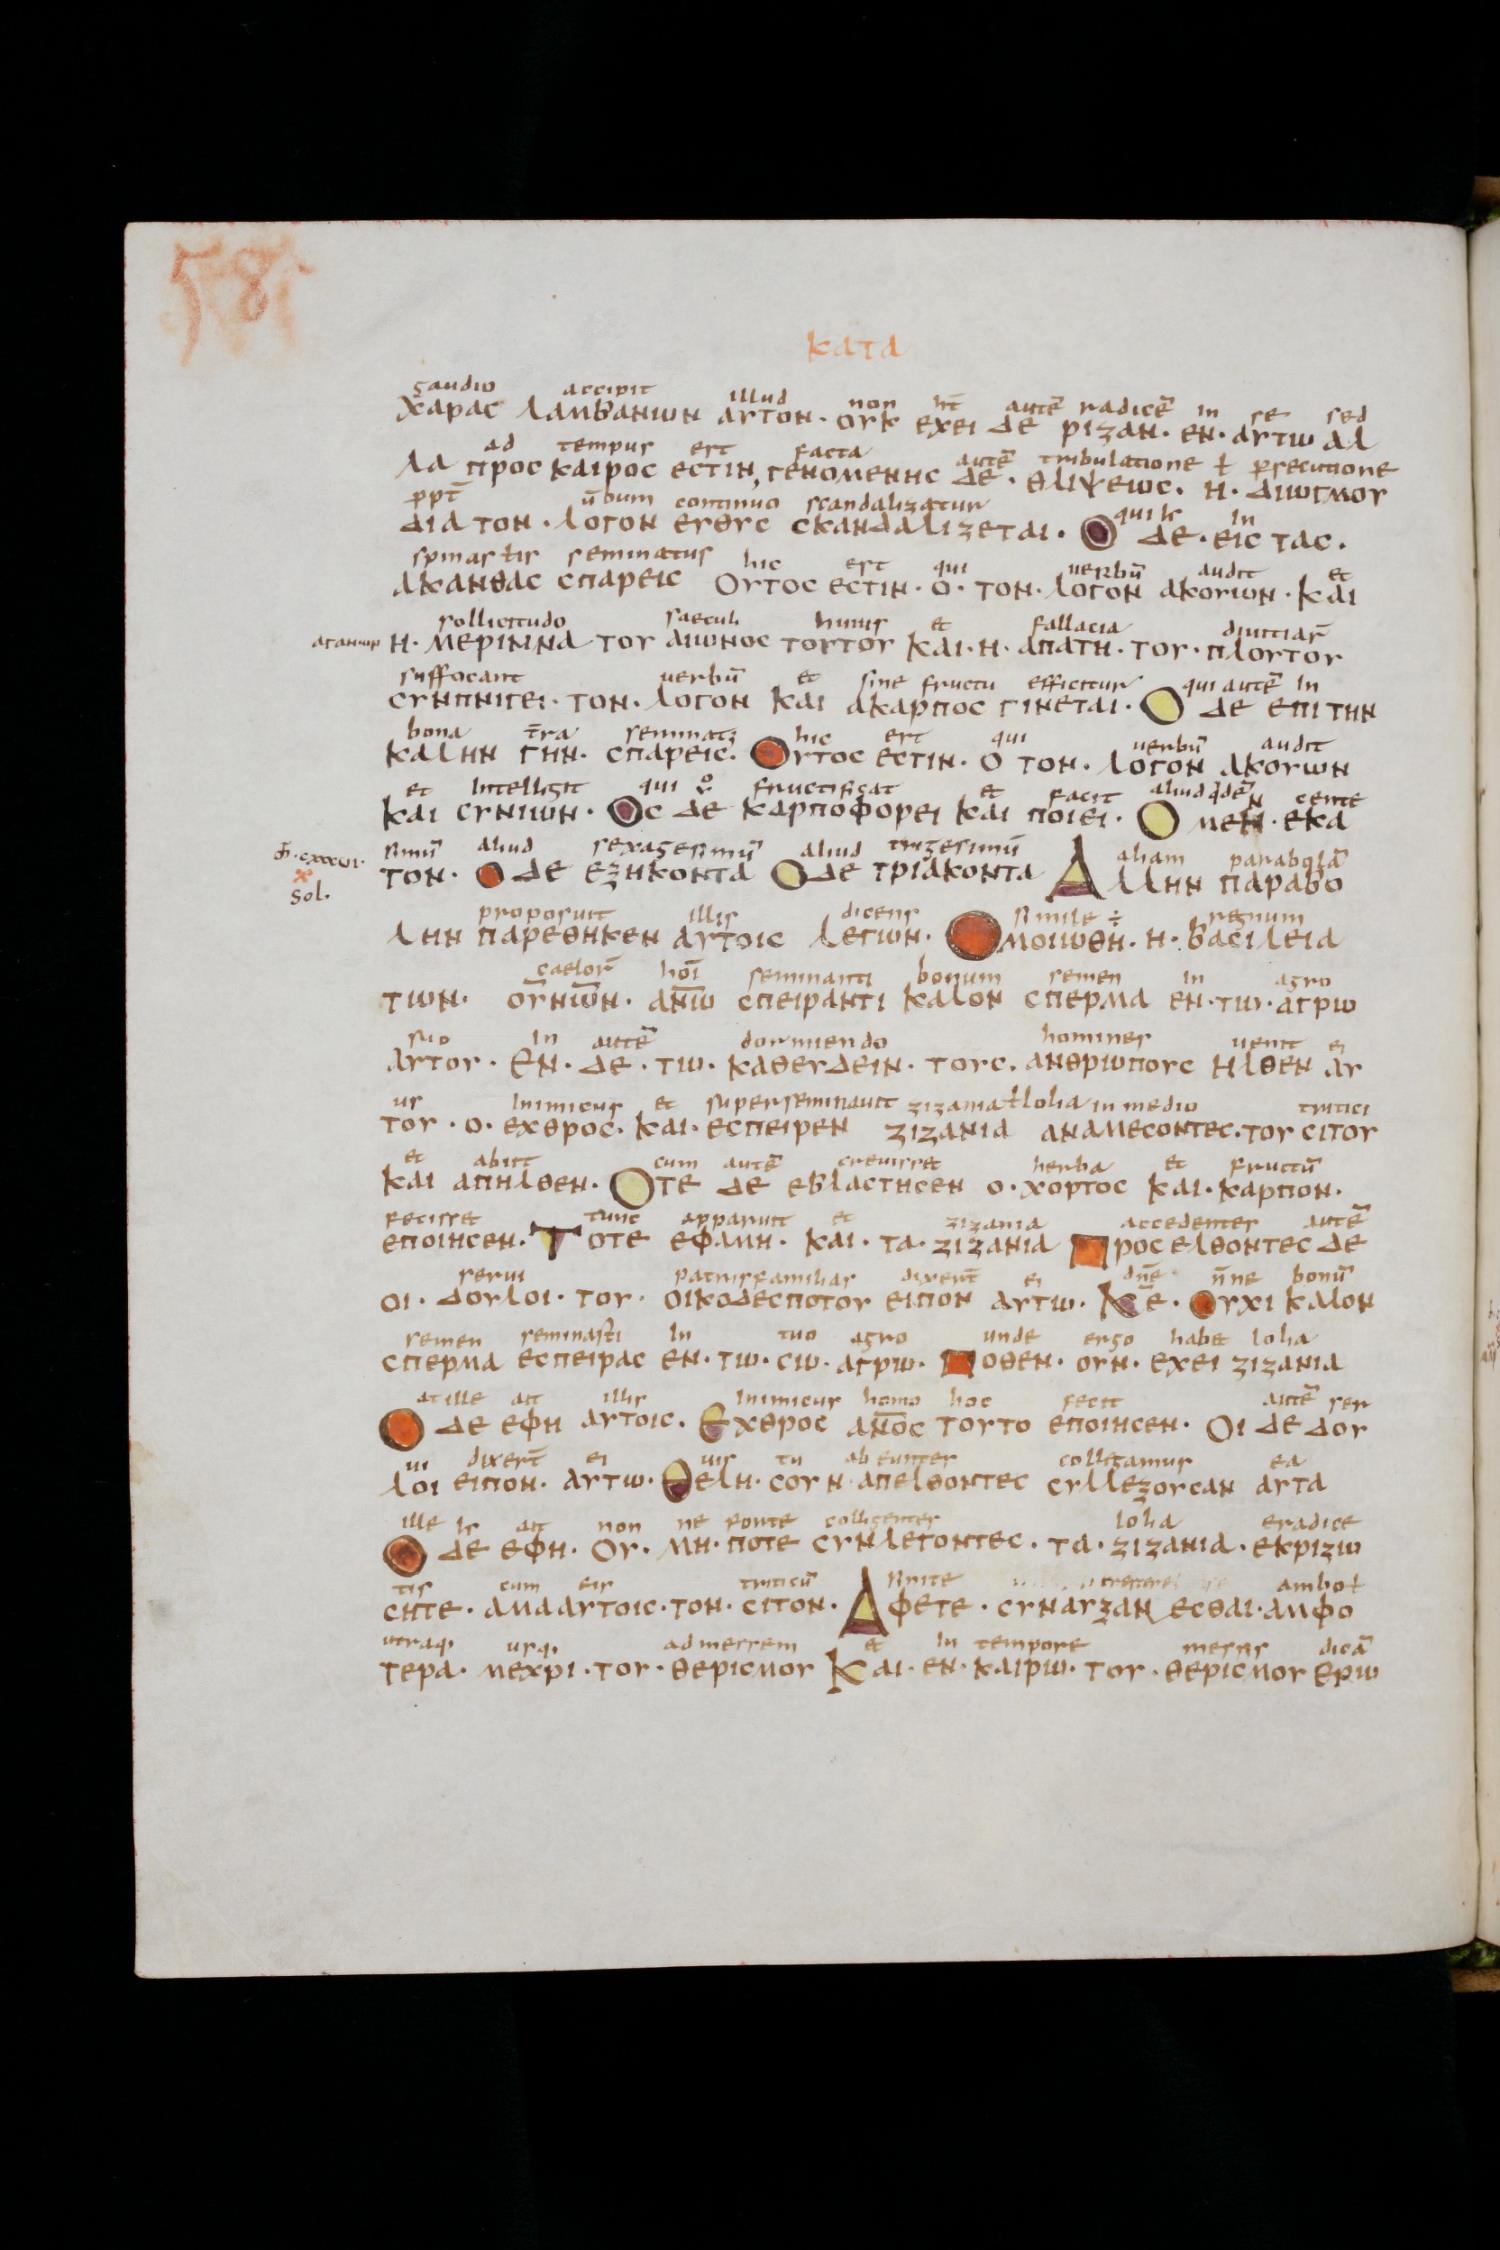 58
κατα
gaudio accipit illud non ht̄ autē radicē in se sed
χαρας λαμβανιων αυτον· ουκ εχει δε ριζαν· εν· αυτω αλ
ad tempus est facta autē tribulatione ł persecutione
λα προς καιρος εστιν, γενομενης δε· θλιψεως· η· διωγμου
ppt̄ ūbum continuo scandalizatur qui in
δια τον· λογον ευθυς σκανδαλιζεται· Ο δε· εις τας·
spinas seminatus hic est qui uerbū audit et
ακανθας σπαρεις Ουτος εστιν· ο· τον· λογον ακουων· και
sollicitudo saeculi huius et fallacia diuitiaꝝ
η· μεριμνα του αιωνος τουτου και· η· απατη· του· πλουτου
suffocant uerbū et sine fructu efficitur qui autē in
συνπνιγει· τον· λογον και ακαρπος γινεται· Ο δε επι την
bona t̄ra seminat; hic est qui uerbū audit
καλην γην· σπαρεις· Ουτος εστιν· ο τον· λογον ακουων
et intelligit qui fructificat et facit aliud qdē cente
και συνιων· Ος δε καρποφορει και ποιει· Ο μεν· εκα
simū aliud sexagesimū aliud trigesimū aliam parabolā
τον· Ο δε εξηκοντα Ο δε τριακοντα Αλλην παραβο
sol.
proposuit illis dicens simile ÷ regnum
λην παρεθηκεν αυτοις λεγων· Ομοιωθη· η· βασιλεια
caeloꝝ hōi seminanti bonum semen in agro
των· ουνω̄ν· ανω̄ σπειραντι καλον σπερμα εν· τω· αγρω
suo in autē dormiendo homines uenit ei
αυτου· Εν· δε· τω· καθευδειν· τους· ανθρωπους Ηλθεν αυ
us inimicus et superseminauit zizania ł lolia in medio tritici
του· ο· εχθρος· και· εσπειρεν ζιζανια αναμεσοντες· του σιτου
et abiit cum autē creuisset herba et fructū
και απηλθεν· Οτε δε εβλαστησεν ο· χορτος και· καρπον·
fecisset tunc apparuit et zizania accedentes autē
εποιησεν· Τοτε εφανη· και· τα· ζιζανια Προσελθοντες δε
serui patrisfamilias dixert̄ ei dn̄e n̄ne bonū
οι· δουλοι· του· οικοδεσποτου ειπον αυτω· Κ̄ε· Ουχι καλον
semen seminasti in tuo agro unde ergo habet lolia
σπερμα εσπειρας εν· τω· σω· αγρω· Ποθεν· ουν· εχει ζιζανια
at ille ait illis inimicus homo hoc fecit autē ser
Ο δε εφη αυτοις· Εχθρος αν̄ος τουτο εποιησεν· Οι δε δου
ui dixert̄ ei uis tu abeuntes colligamus ea
λοι ειπον· αυτω· Θελη· σουν· απελθοντες συλλεξουσαν αυτα
ille ait non ne forte colligentes lolia eradice
Ο δε εφη· Ου· μη· ποτε συνλεγοντες· τα· ζιζανια· εκριζω
tis cum eis triticū sinite crescere ambo ł
σητε· αμα αυτοις· τον· σιτον· Αφετε· συναυξανεσθαι· αμφο
utraq; usq; ad messem et in tempore messis dicā
τερα· μεχρι· του· θερισμου Και· εν· καιρω· του· θερισμου ερω